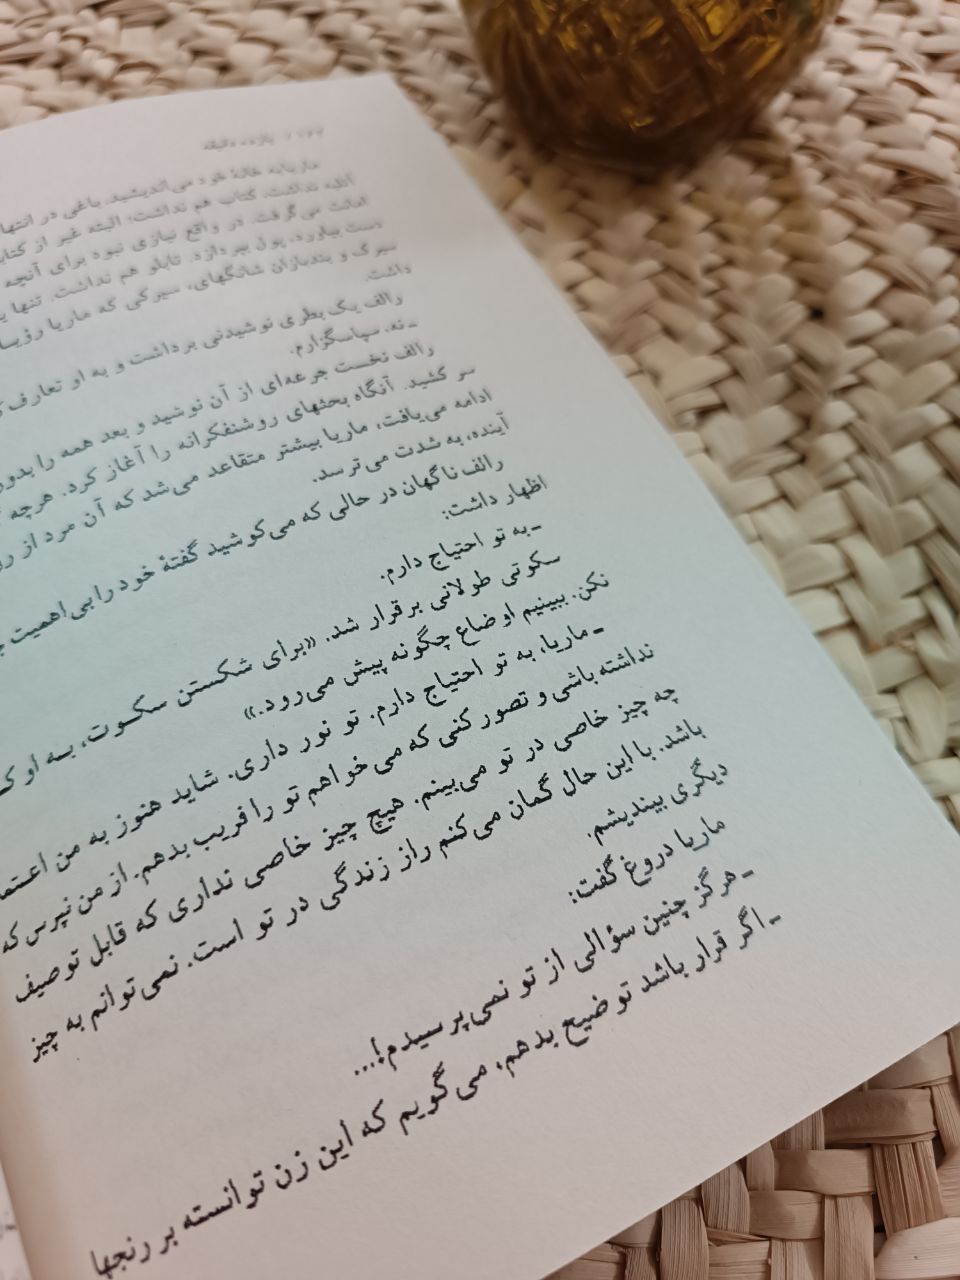 یازده دقیقه
ماریا به خانهٔ خود می‌اندیشید. باغی در انتها
نداشت، کتاب هم نداشت؛ البته غیر از کتاب
امانت می‌گرفت. در واقع نیازی نبود برای آنچه
دست بیاورد، پول بپردازد. تابلو هم نداشت. تنها
سیرک و بندبازان شانگهای، سیرکی که ماریا رؤیا
داشت.
رالف یک بطری نوشیدنی برداشت و به او تعارف
ـ نه، سپاسگزارم.
رالف نخست جرعه‌ای از آن نوشید و بعد همه را بدون
سر کشید. آنگاه بحثهای روشنفکرانه را آغاز کرد. هرچه
ادامه می‌یافت، ماریا بیشتر متقاعد می‌شد که آن مرد از
آینده، به شدت می‌ترسد.
رالف ناگهان در حالی که می‌کوشید گفتهٔ خود را بی‌اهمیت
اظهار داشت:
ـ به تو احتیاج دارم.
سکوتی طولانی برقرار شد. «برای شکستن سکوت، به او
نکن. ببینیم اوضاع چگونه پیش می‌رود.»
ـ ماریا، به تو احتیاج دارم. تو نور داری. شاید هنوز به من
نداشته باشی و تصور کنی که می‌خواهم تو را فریب بدهم. از من نپرس که
چه چیز خاصی در تو می‌بینم. هیچ چیز خاصی نداری که قابل توصیف
باشد. با این حال گمان می‌کنم راز زندگی در تو است. نمی‌توانم به چیز
دیگری بیندیشم.
ماریا دروغ گفت:
ـ هرگز چنین سؤالی از تو نمی‌پرسیدم!...
ـ اگر قرار باشد توضیح بدهم، می‌گویم که این زن توانسته بر رنجها